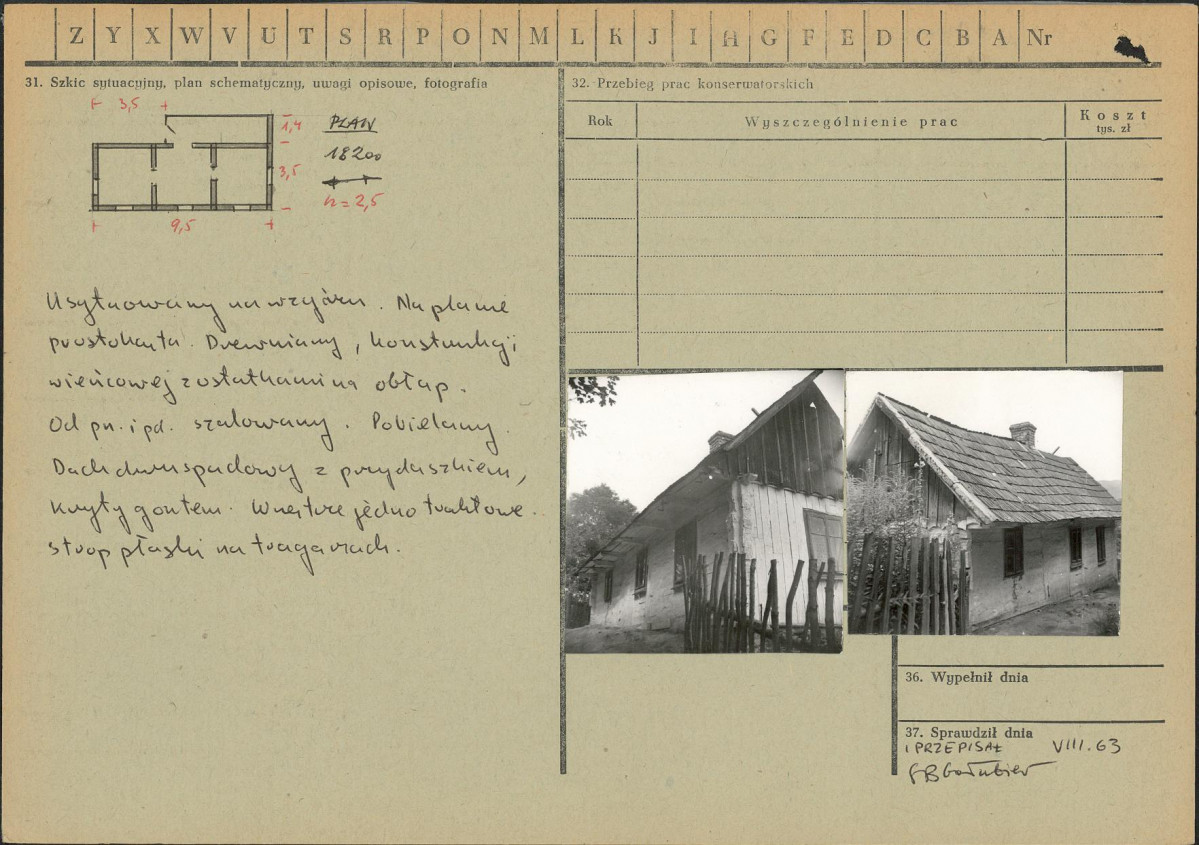 Z Y X W V U T S R P O N M L K J I H G F E D C B A Nr
31. Szkic sytuacyjny, plan schematyczny, uwagi opisowe, fotografia
3,5
1,4
PLAN
1:200
3,5
h = 2,5
9,5
Usytuowany na wzgórzu. Na planie
prostokąta. Drewniany, konstrukcji
wieńcowej z ostatkami na obłap.
Od pn. i pd. szalowany. Pobielany.
Dach dwuspadowy z przydaszkiem,
kryty gontem. Wnętrze jednotraktowe.
strop płaski na tragarzach.
32. Przebieg prac konserwatorskich
Rok Wyszczególnienie prac Koszt
tys. zł
36. Wypełnił dnia
37. Sprawdził dnia
I PRZEPISAŁ VIII. 63